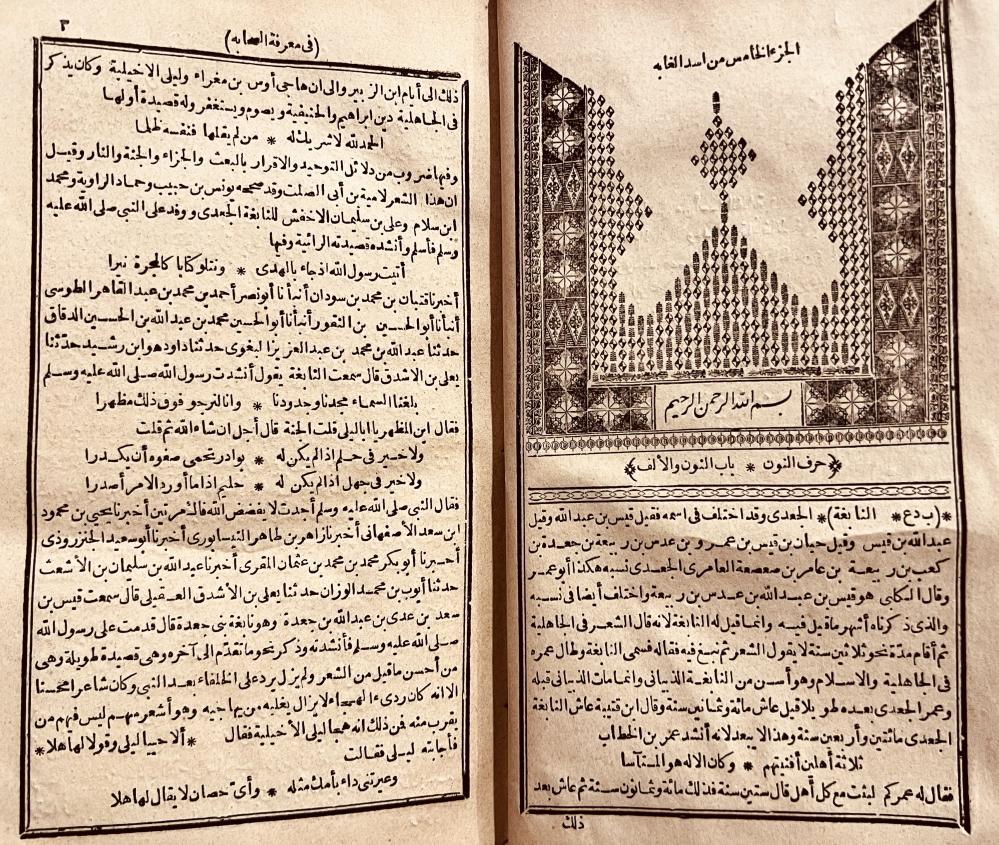 الجزء الخامس من اسد الغابه
بسم الله الرحمن الرحيم
﴿حرف النون * باب النون والألف﴾
*(ب دع * النابغة)* الجعدى وقد اختلف فى اسمه فقيل قيس بن عبد الله وقيل
عبد الله بن قيس وقيل حيان بن قيس بن عمرو بن عدس بن ربيعة بن جعدة بن
كعب بن ربيعة بن عامر بن صعصعة العامرى الجعدى نسبه هكذا أبو عمر
وقال الكلبى هو قيس بن عبد الله بن عدس بن ربيعة واختلف أيضا فى نسبه
والذى ذكرناه أشهر ما قيل فيه وانما قيل له النابغة لانه قال الشعر فى الجاهلية
ثم أقام مدة نحو ثلاثين سنة لا يقول الشعر ثم نبغ فيه فقاله فسمى النابغة وطال عمره
فى الجاهلية والاسلام وهو أسن من النابغة الذبيانى وانما مات الذبيانى قبله
وعمر الجعدى بعده طويلا قيل عاش مائة وثمانين سنة وقال ابن قتيبة عاش النابغة
الجعدى مائتين وأربعين سنة وهذا لا يبعد لانه أنشد عمر بن الخطاب
ثلاثة أهلين أفنيتهم * وكان الاله هو المستآسا
فقال له عمر كم لبثت مع كل أهل قال ستين سنة فذلك مائة وثمانون سنة ثم عاش بعد
ذلك
٣
(فى معرفة الصحابه)
ذلك الى أيام ابن الزبير والى ان هاجى أوس بن مغراء وليلى الاخيلية وكان يذكر
فى الجاهلية دين ابراهيم والحنيفية ويصوم ويستغفر وله قصيدة أولها
الحمد لله لا شريك له * من لم يقلها فنفسه ظلما
وفيها ضروب من دلائل التوحيد والاقرار بالبعث والجزاء والجنة والنار وقيل
ان هذا الشعر لامية بن أبى الصلت وقد صححه يونس بن حبيب وحماد الراوية ومحمد
ابن سلام وعلى بن سليمان الاخفش للنابغة الجعدى ووفد على النبى صلى الله عليه
وسلم فأسلم وأنشده قصيدته الرائية وفيها
أتيت رسول الله اذ جاء بالهدى * ونتلو كتابا كالمجرة نيرا
أخبرنا قتبان بن محمد بن سودان أنبأنا أبو نصر أحمد بن محمد بن عبد القاهر الطوسى
أنبأنا أبو الحسين بن النقور أنبأنا أبو الحسين محمد بن عبد الله بن الحسين الدقاق
حدثنا عبد الله بن محمد بن عبد العزيز البغوى حدثنا داود هو ابن رشيد حدثنا
يعلى بن الاشدق قال سمعت النابغة يقول أنشدت رسول الله صلى الله عليه وسلم
بلغنا السماء مجدنا وجدودنا * وانا لنرجو فوق ذلك مظهرا
فقال اين المظهر يا ابا ليلى قلت الجنة قال أجل ان شاء الله ثم قلت
ولا خير فى حلم اذا لم يكن له * بوادر تحمى صفوه أن يكدرا
ولا خير فى جهل اذا لم يكن له * حليم اذا ما أورد الامر أصدرا
فقال النبى صلى الله عليه وسلم أجدت لا يفضض الله فاك مرتين أخبرنا يحيى بن محمود
ابن سعد الاصفهانى أخبرنا زاهر بن طاهر النيسابورى أخبرنا أبو سعيد الجنزروذى
أخبرنا أبو بكر محمد بن محمد بن عثمان المقرى أخبرنا عبد الله بن سليمان بن الأشعث
حدثنا أيوب بن محمد الوزان حدثنا يعلى بن الأشدق العقيلى قال سمعت قيس بن
سعد بن عدى بن عبد الله بن جعدة وهو نابغة بنى جعدة قال قدمت على رسول الله
صلى الله عليه وسلم فأنشدته وذكر نحو ما تقدم الى آخره وهى قصيدة طويلة وهى
من أحسن ما قيل من الشعر ولم يزل يرد على الخلفاء بعد النبى وكان شاعرا محسنا
الا انه كان ردىء الهجاء لا يزال يغلبه من يهاجيه وهو أشعر منهم ليس فيهم من
يقرب منه فمن ذلك انه هجا ليلى الأخيلية فقال * ألا حييا ليلى وقولا لها هلا *
فأجابته ليلى فقالت
وعيرتنى داء بأمك مثله * وأى حصان لا يقال لها هلا